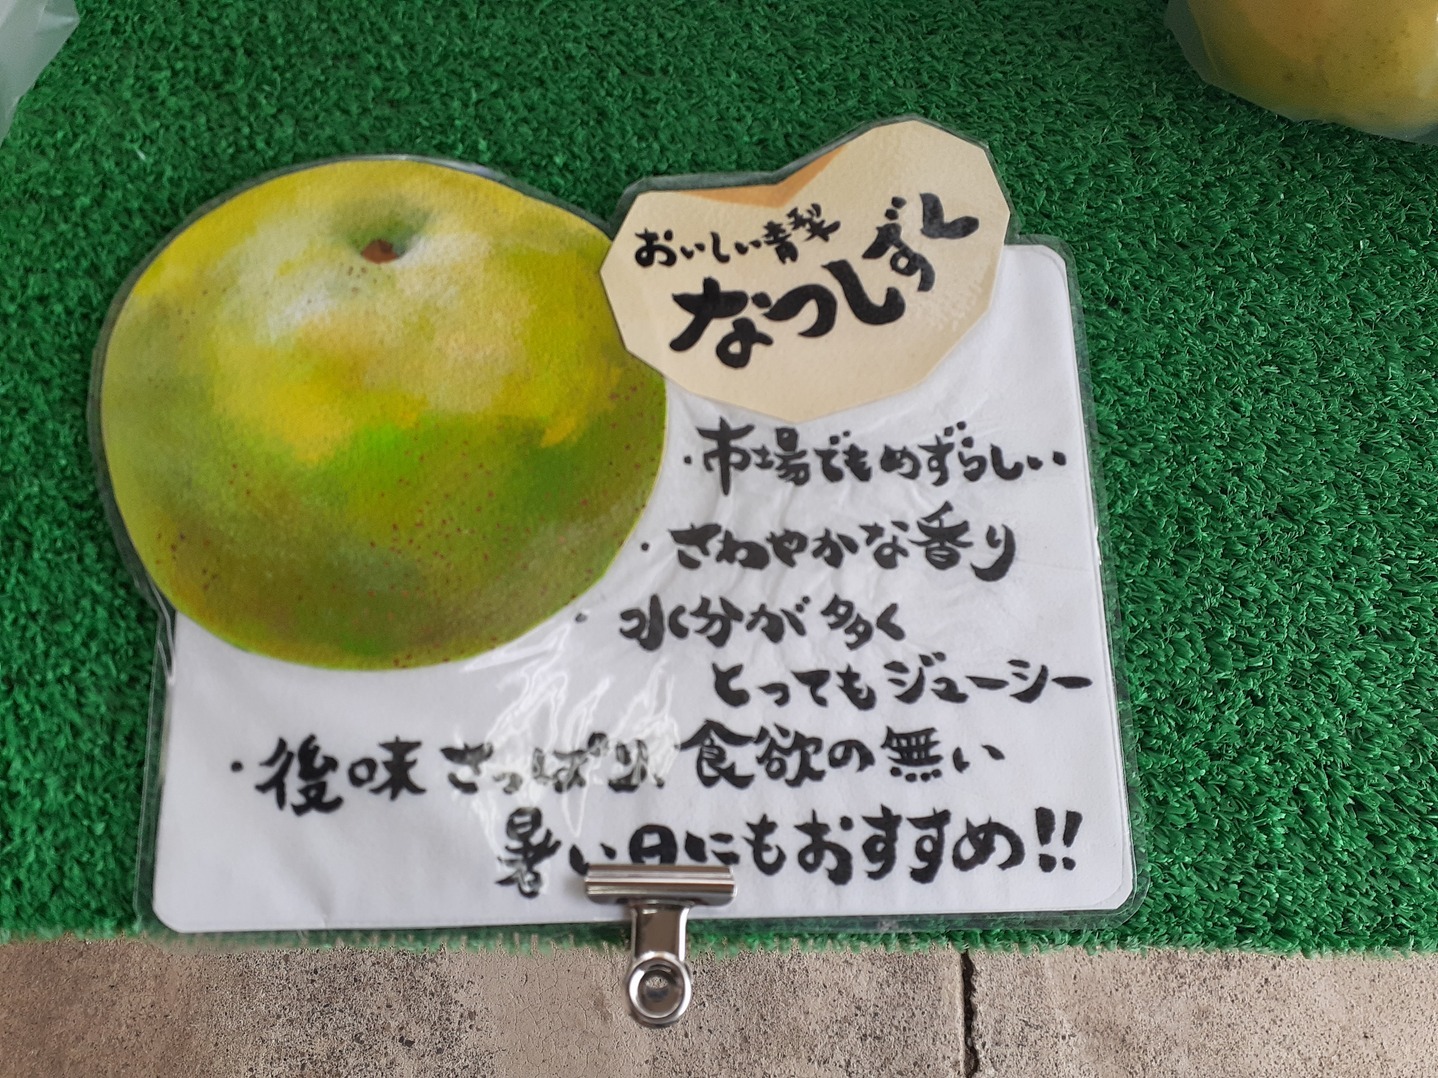 おいしい青梨
なつしずく
・市場でもめずらしい
・さわやかな香り
・水分が多く
とってもジューシー
・後味さっぱり、食欲の無い
暑い日にもおすすめ!!